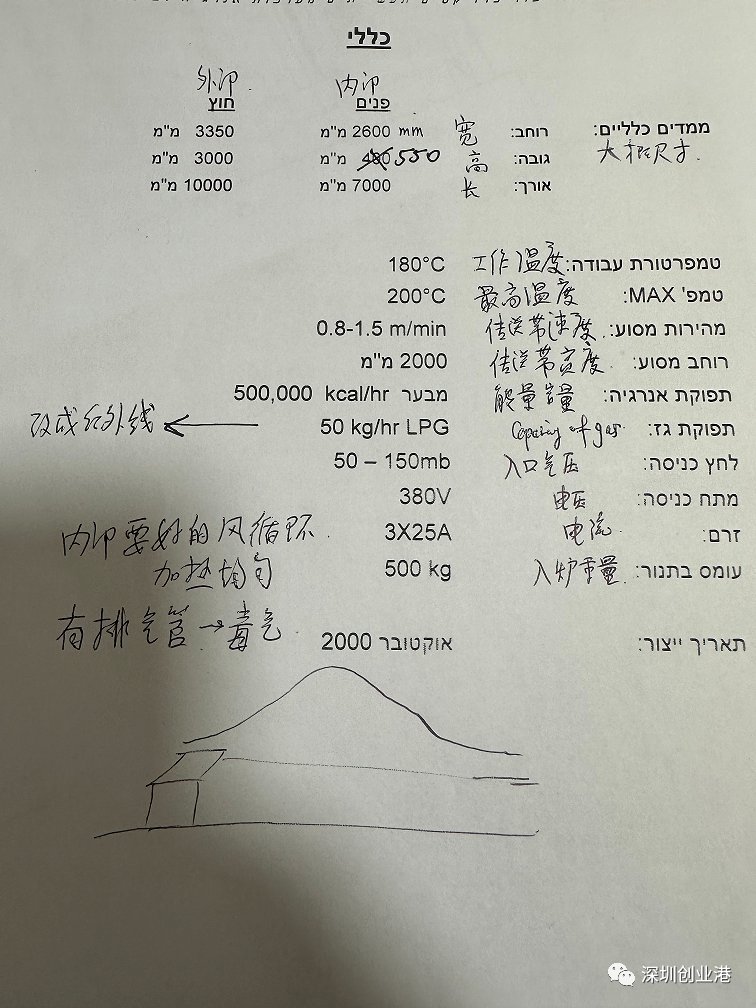 כללי
外部 内部
חוץ פנים
ממדים כלליים: רוחב: 宽 2600 מ"מ mm 3350 מ"מ
大概尺寸. גובה: 高 550 480 מ"מ 3000 מ"מ
אורך: 长 7000 מ"מ 10000 מ"מ
טמפרטורת עבודה: 工作温度 180°C
טמפ' MAX: 最高温度 200°C
מהירות מסוע: 传送带速度 0.8-1.5 m/min
רוחב מסוע: 传送带宽度 2000 מ"מ
תפוקת אנרגיה: 能量容量 מבער 500,000 kcal/hr
תפוקת גז: Capacity of gas 50 kg/hr LPG ← 改成红外线
לחץ כניסה: 入口气压 50 – 150mb
מתח כניסה: 电压 380V
זרם: 电流 3X25A
עומס בתנור: 入炉重量 500 kg
内部要好的风循环
加热均匀
有排气管→毒气
תאריך ייצור: אוקטובר 2000
深圳创业港